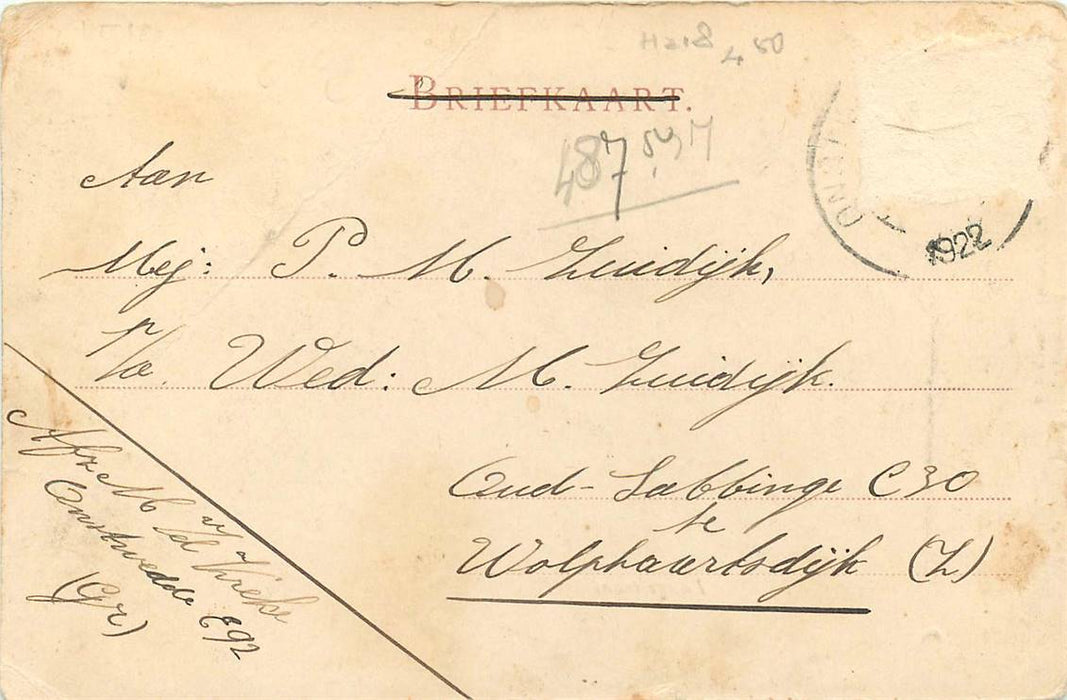 H218 4 50
BRIEFKAART.
487
Aan
Mej: P. M. Zuidijk,
p/a. Wed: M. Zuidijk.
Oud-Sabbinge C30
te
Wolphaartsdijk (Z)
1922
Afz M v/d Vreke
Onstwedde C92
(Gr)